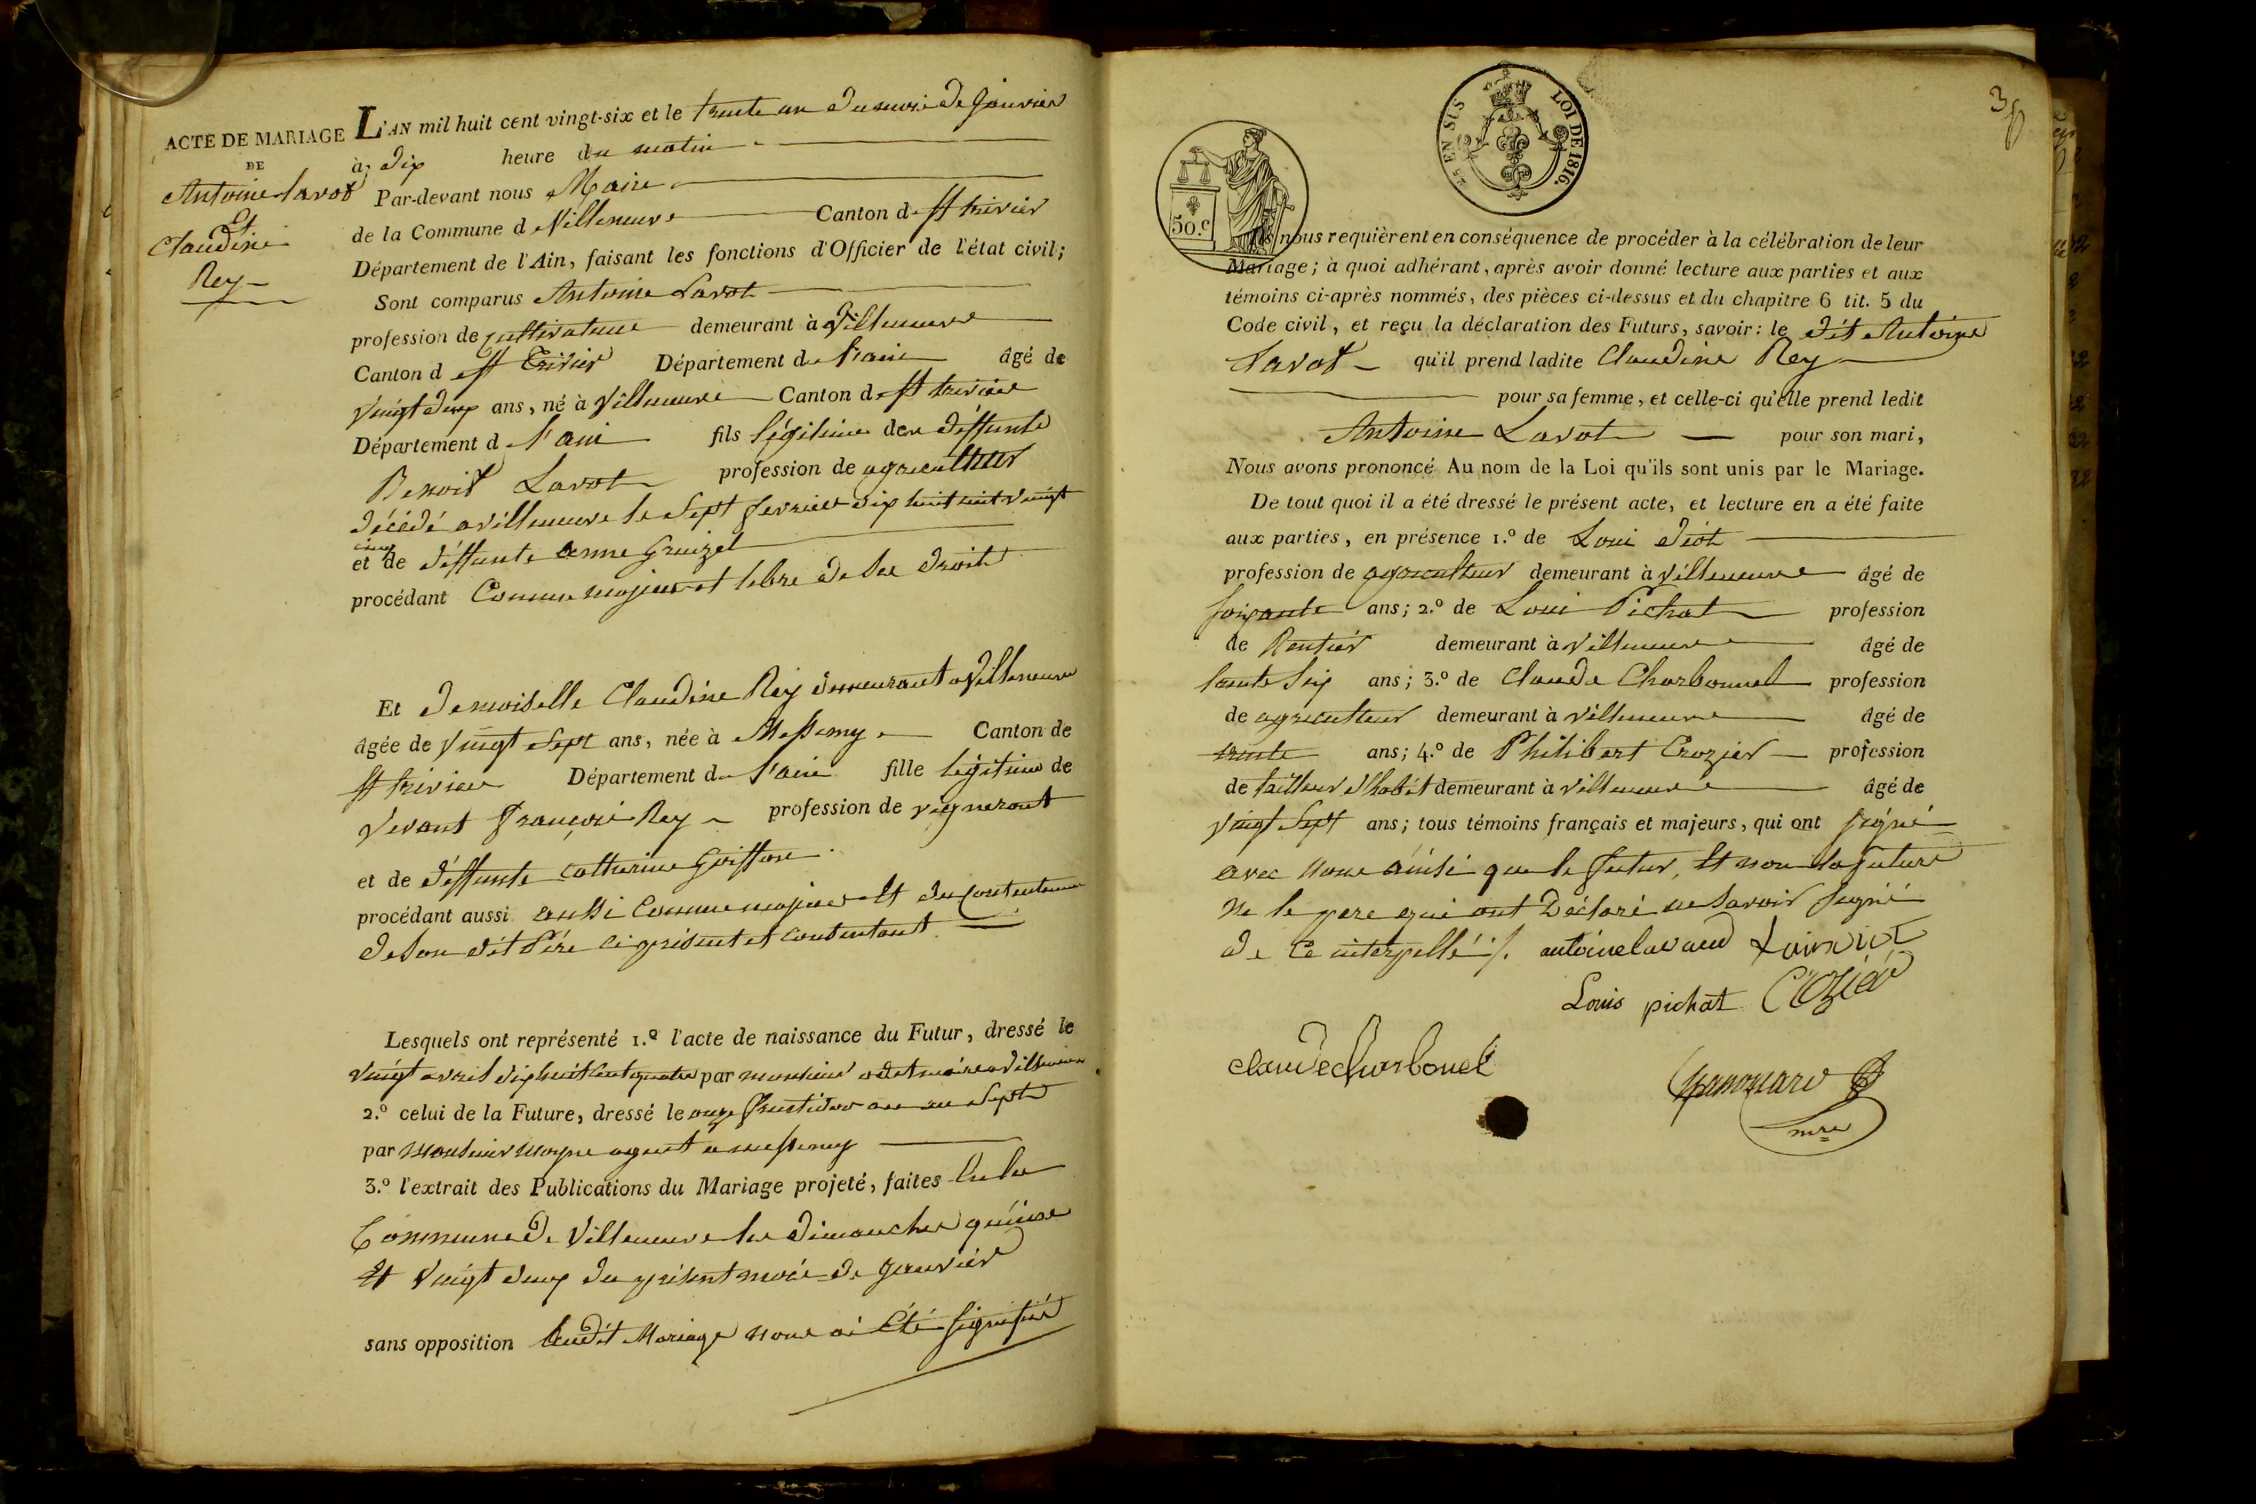 ACTE DE MARIAGE
DE
Antoine Lavot
Et
Claudine
Rey
L'AN mil huit cent vingt-six et le trente un du mois de Janvier
à dix heure du matin
Par-devant nous Maire
de la Commune d Villeneuve Canton d St trivier
Département de l'Ain, faisant les fonctions d'Officier de l'état civil;
Sont comparus Antoine Lavot
profession de cultivateur demeurant à Villeneuve
Canton d St Trivier Département de l'ain âgé de
Vingt deux ans, né à Villeneuve Canton de St trivier
Département d l'ain fils légitime de deffunte
Benoit Lavot profession de agriculteur
décédé a villeneuve le Sept fevrier dix huit cent vingt
cinq
et de deffunte anne Gruizel
procédant Comme majeur et libre de Ses droits
Et demoiselle Claudine Rey demeurant a Villeneuve
âgée de Vingt Sept ans, née à Messimy Canton de
St trivier Département de l'ain fille légitime de
Vivant François Rey profession de vigneront
et de deffunte Catherine Goiffon
procédant aussi aussi Comme majeure Et du Consentement
de Son dit Père ci présent et consentant
Lesquels ont représenté 1.º l'acte de naissance du Futur, dressé le
vingt avril dix huit Cent quatre par monsieur adet maire a Villeneuve
2.º celui de la Future, dressé le onze fructidor an Sept
par monsieur moyne agent a messimy
3.º l'extrait des Publications du Mariage projeté, faites en la
Commune de Villeneuve les dimanches quinze
Et Vingt deux du présent mois de Janvier
sans opposition audit Mariage nous ai Été Signifié
36
25 EN SUS LOI DE 1816.
50.C
Ils nous requièrent en conséquence de procéder à la célébration de leur
Mariage; à quoi adhérant, après avoir donné lecture aux parties et aux
témoins ci-après nommés, des pièces ci-dessus et du chapitre 6 tit. 5 du
Code civil, et reçu la déclaration des Futurs, savoir: le dit Antoine
Lavot qu'il prend ladite Claudine Rey
pour sa femme, et celle-ci qu'elle prend ledit
Antoine Lavot pour son mari,
Nous avons prononcé Au nom de la Loi qu'ils sont unis par le Mariage.
De tout quoi il a été dressé le présent acte, et lecture en a été faite
aux parties, en présence 1.º de Loui diot
profession de agriculteur demeurant à Villeneuve âgé de
Soixante ans; 2.º de Loui Pichat profession
de Rentier demeurant à Villeneuve âgé de
trente Six ans; 3.º de Claude Charbonnel profession
de agriculteur demeurant à Villeneuve âgé de
trente ans; 4.º de Philibert Crozier profession
de tailleur d'habit demeurant à villeneuve âgé de
vingt Sept ans; tous témoins français et majeurs, qui ont Signé
avec nous ainsi que le futur, Et non la future
ne le pere qui ont Déclaré ne Savoir Signé
de Ce interpellé ./. antoine lavaud
Louis pichat Crozier
claude charbonel
mre